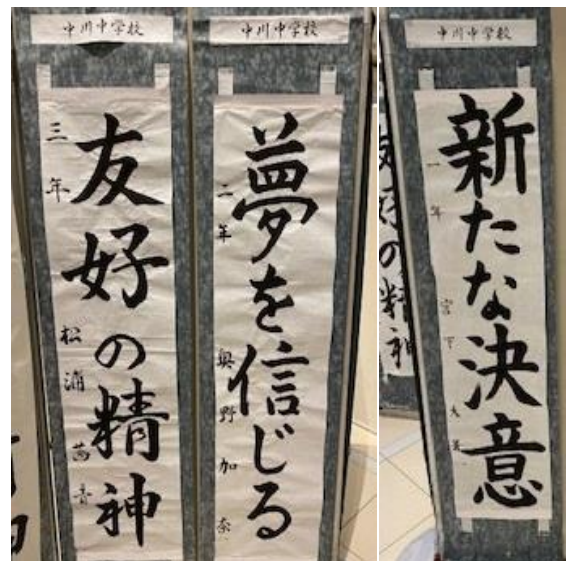 中川中学校
友好の精神
三年 松浦茜音
中川中学校
夢を信じる
二年 奥野加奈
中川中学校
新たな決意
一年 宮下